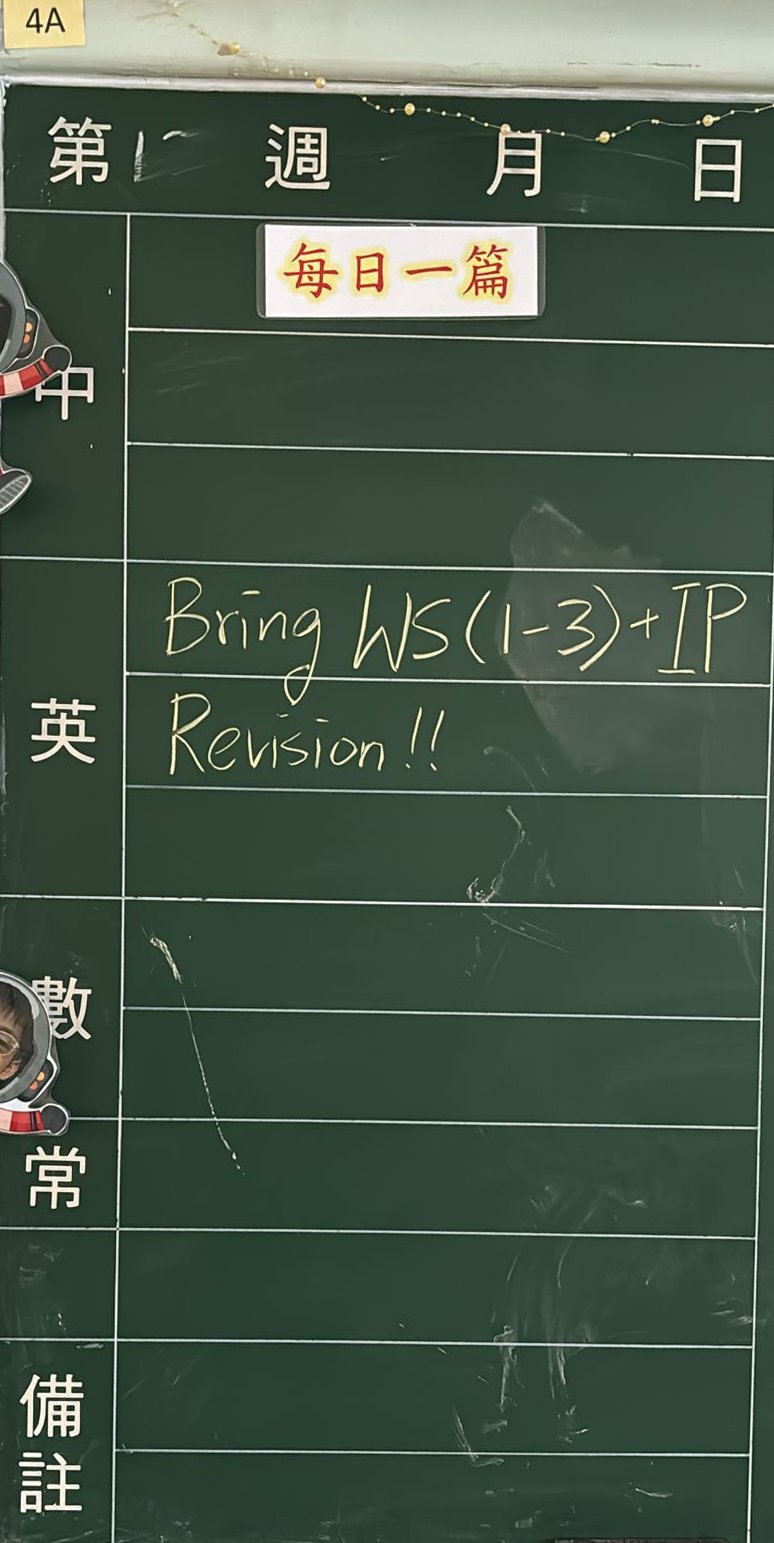 4A
第 週 月 日
每日一篇
中
Bring WS(1-3)+IP
Revision!!
英
數
常
備
註